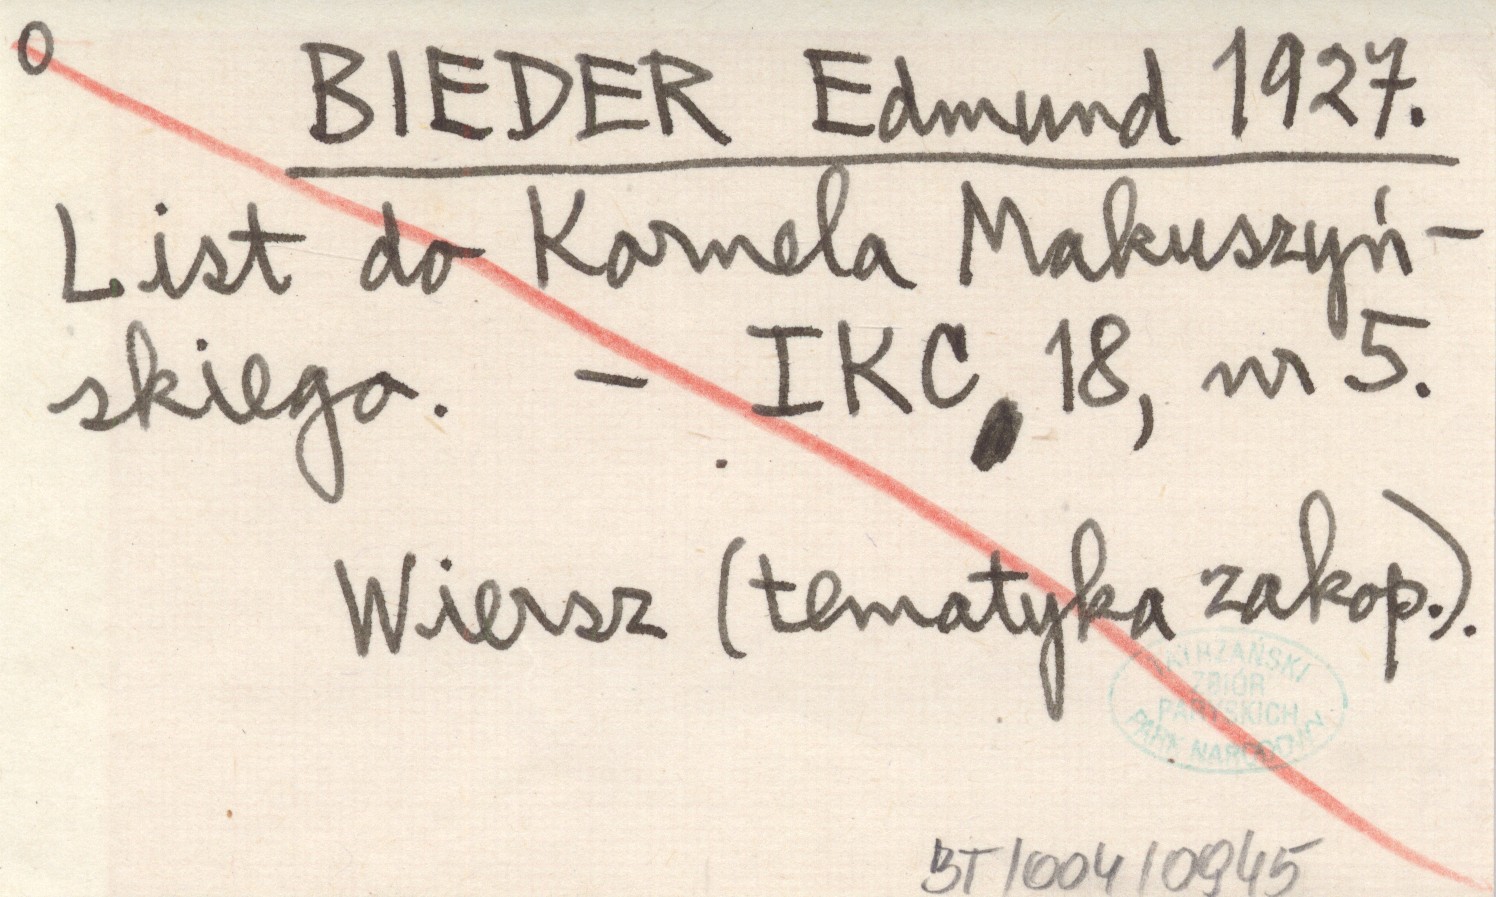 0
BIEDER Edmund 1927.
List do Kornela Makuszyń-
skiego. - IKC, 18, nr 5.
Wiersz (tematyka zakop.).
TATRZAŃSKI
ZBIÓR
PARYSKICH
PARK NARODOWY
BT/004/0945